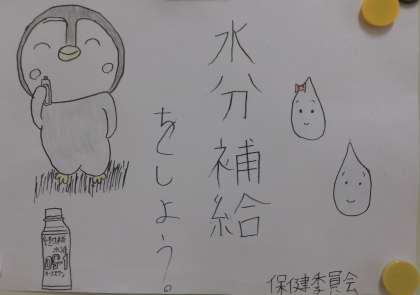 水分補給
をしよう。
保健委員会